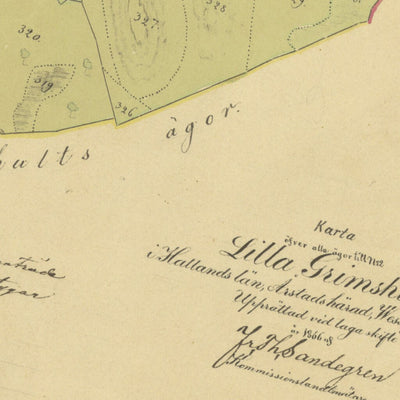 320.
327.
328
319
326
hults
ägor.
Karta
öfver alla ägor till N:o2
Lilla Grimsh
i Hallands län, Årstads härad, Wes
Upprättad vid laga skifte
år 1866 af
Fr. Th. Sandegren
Kommissionslandtmätare